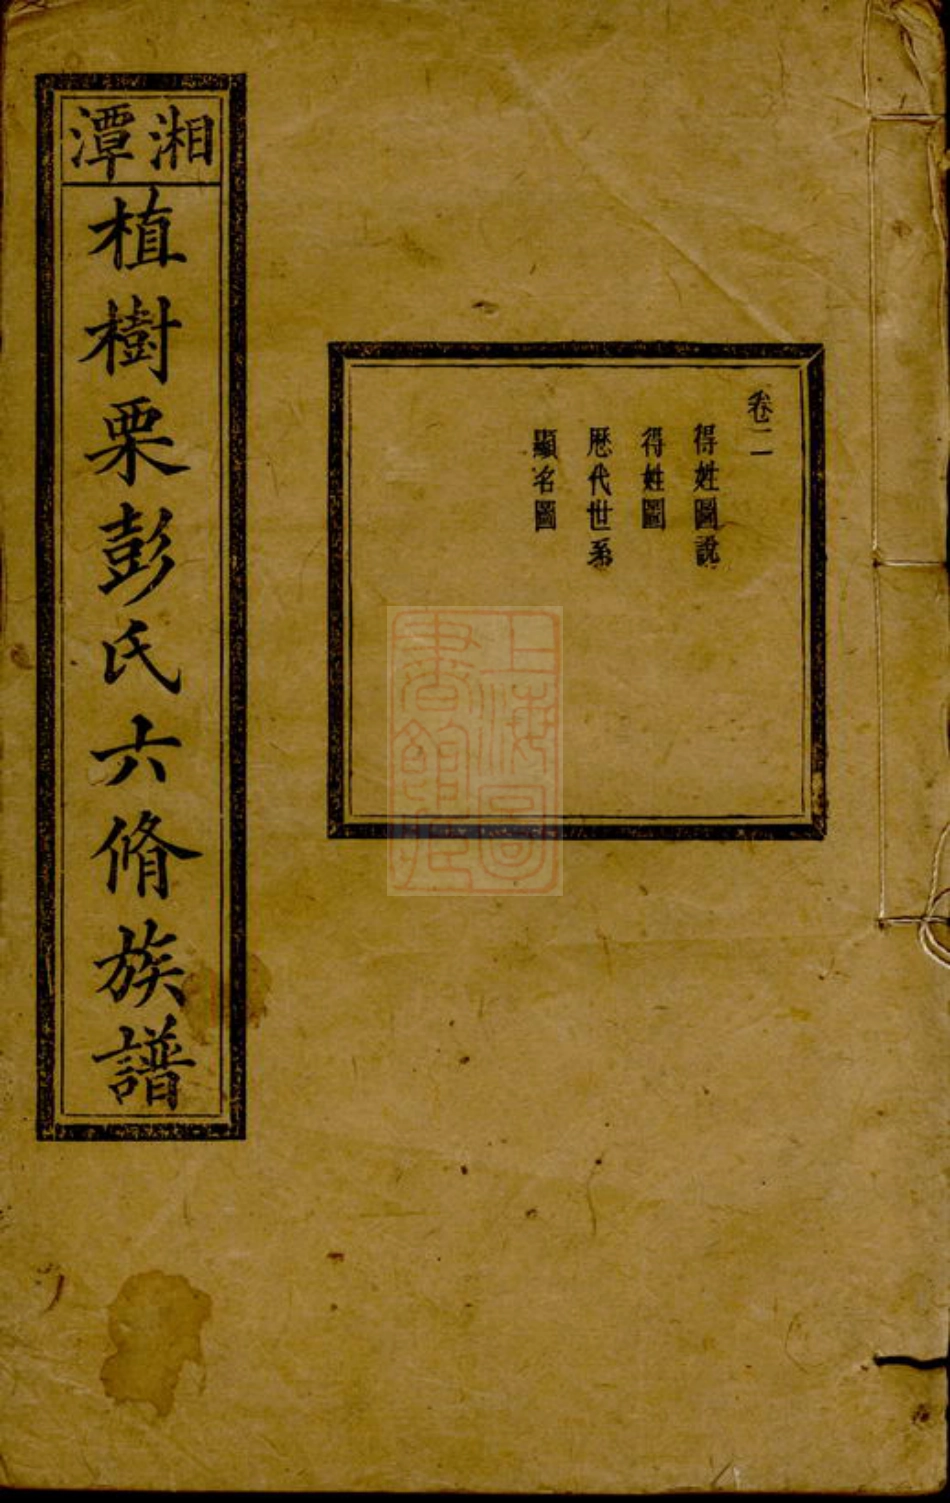 湘潭
植樹栗彭氏六脩族譜
卷二
得姓圖說
得姓圖
歷代世系
顯名圖
上海圖
書館藏